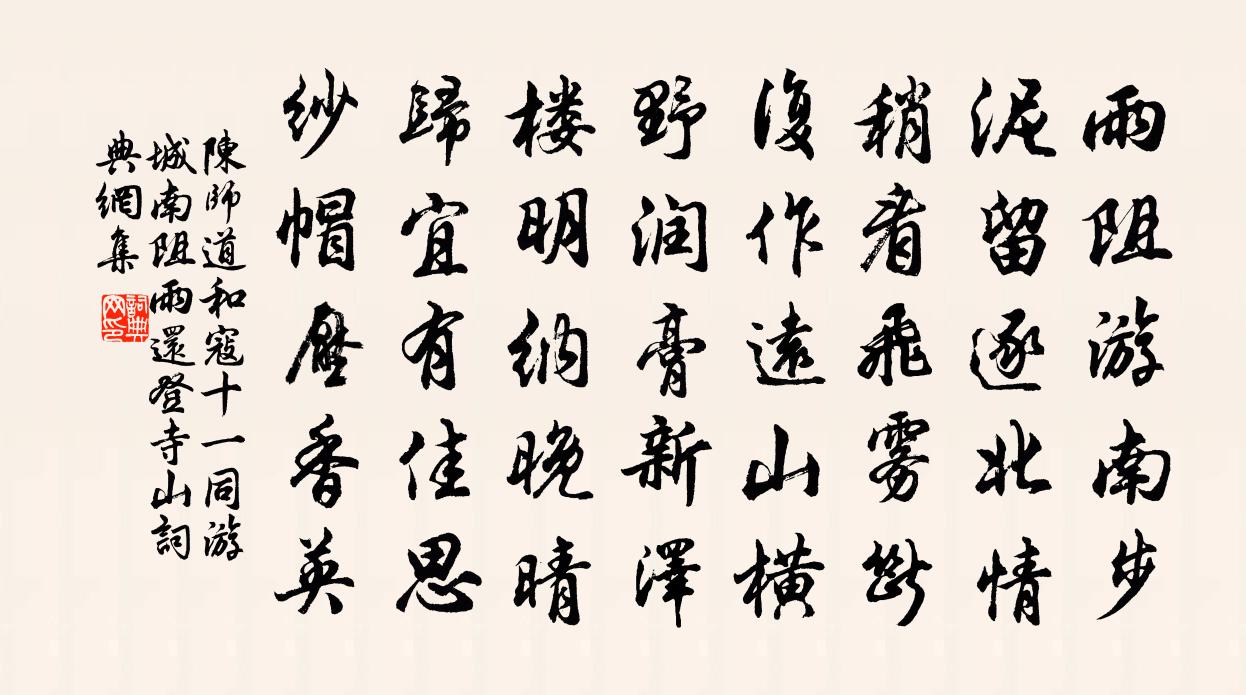 雨阻游南步
泥留逐北情
稍看飛雾斷
復作遠山橫
野润膏新澤
楼明纳晚晴
歸宜有佳思
纱帽壓香英
陳師道和寇十一同游
城南阻雨還登寺山詞
典網集
詞典
网印